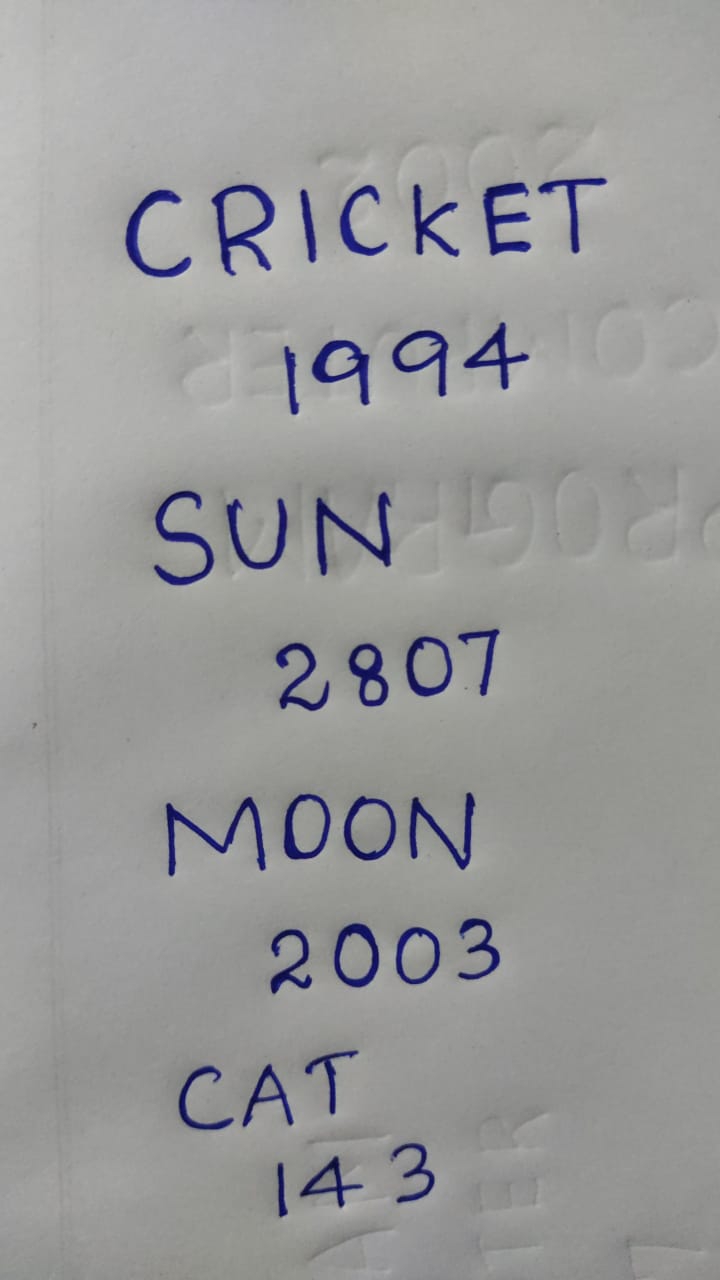 CRICKET
1994
SUN
2807
MOON
2003
CAT
143